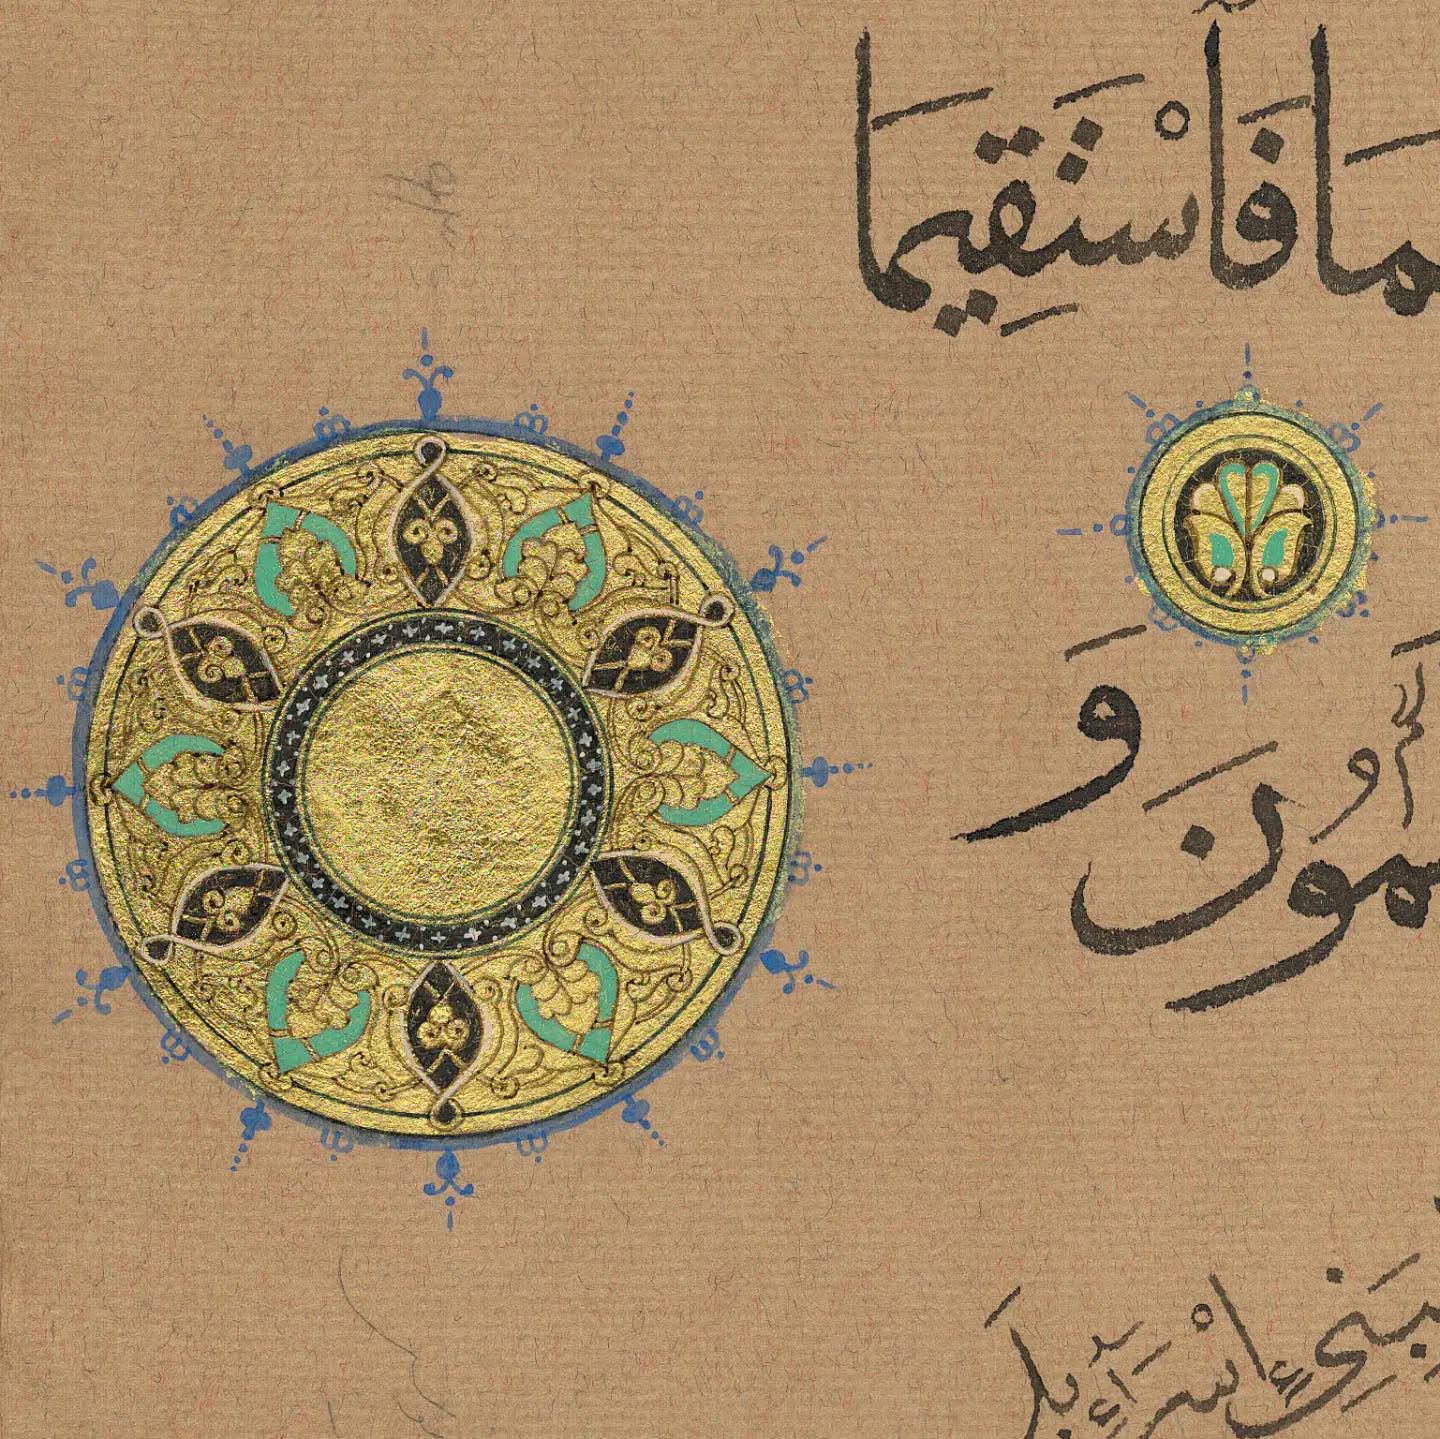 مَا فَاَسْتَقِيمَا
مُونَ وَ
بَنِي إِسْرَآءِيلَ